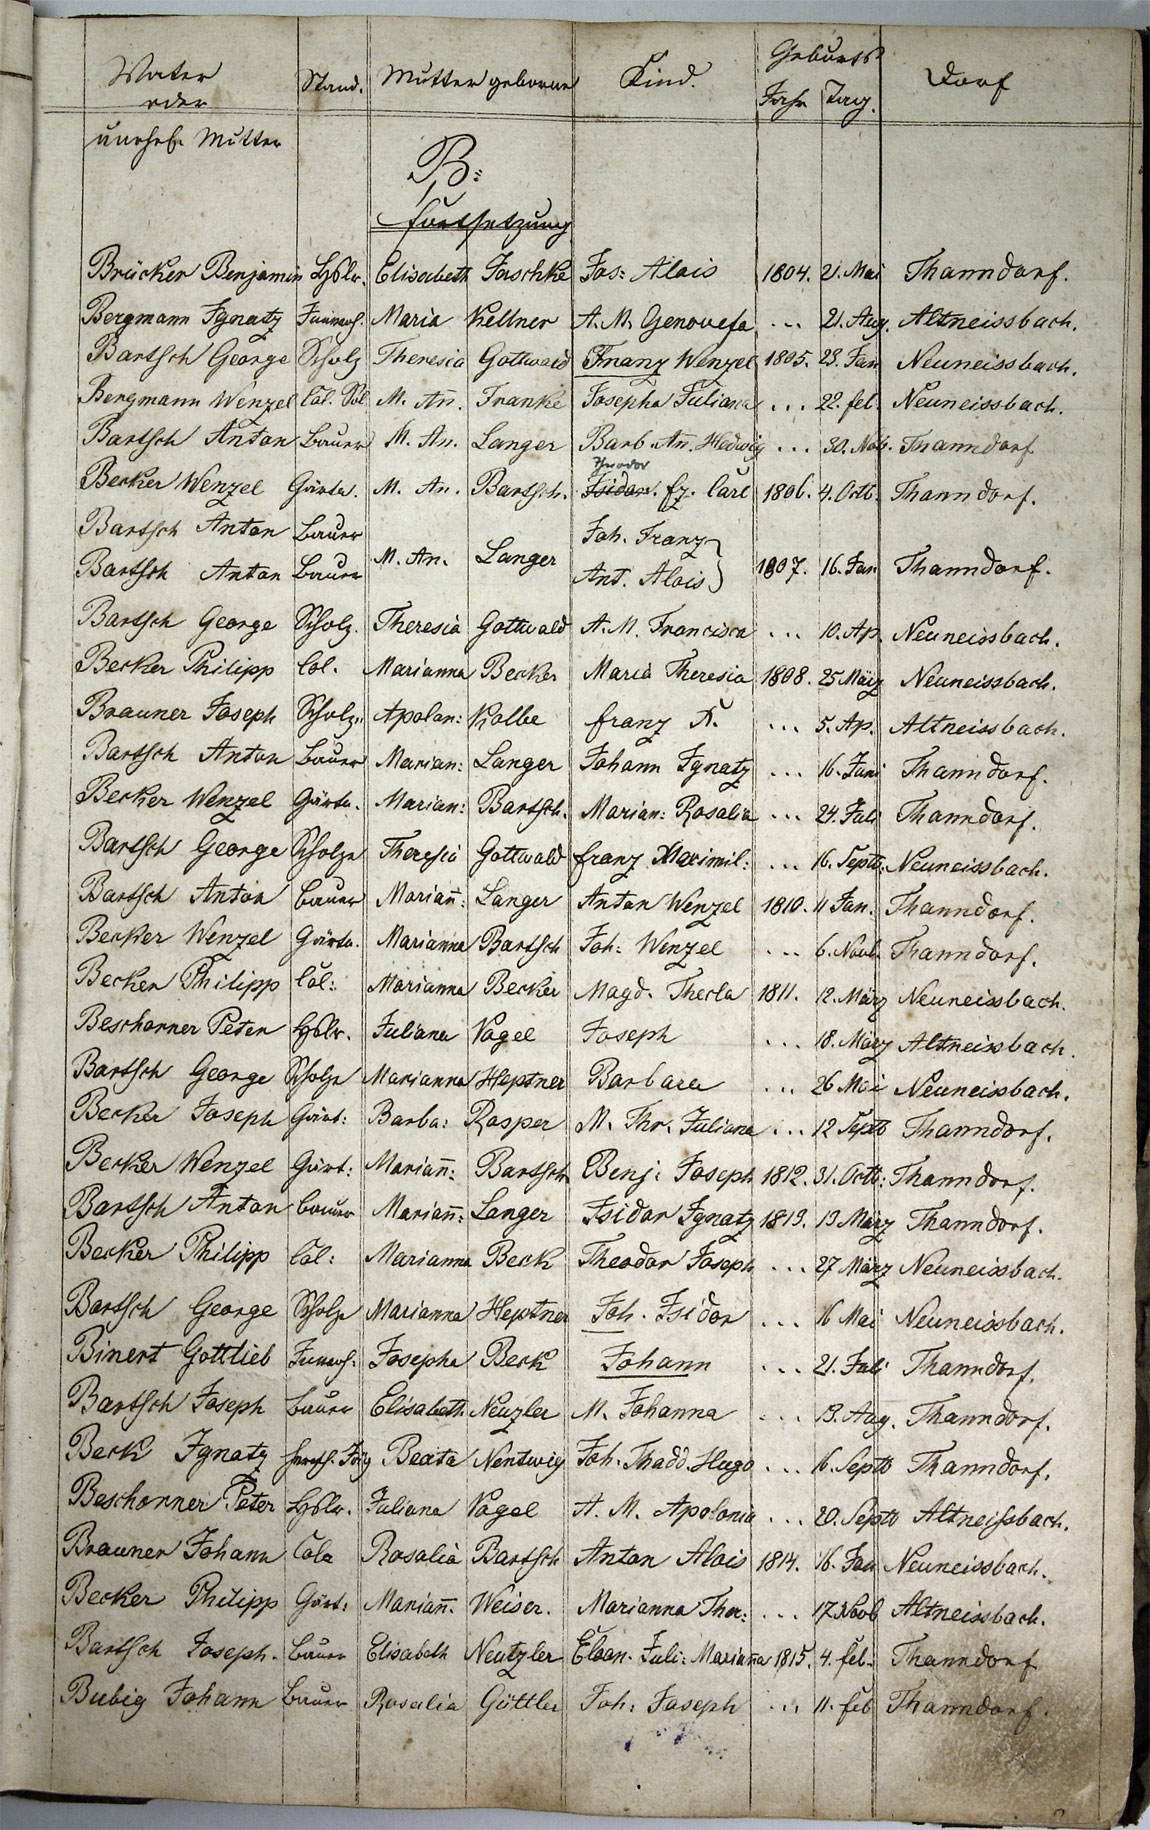 Vater oder unehel. Mutter Stand. Mutter geborne Kind. Geburts Jahr Tag. Dorf
B:
Fortsetzung
Brücker Benjamin Hslr. Elisabeth Jaschke Jos: Alois 1804. 21. Mai Thanndorf.
Bergmann Ignatz Maria Kellner A. M. Genovefa ... 21. Aug. Altneissbach.
Bartsch George Scholz Theresia Gottwald Franz Wenzel 1805. 23. Jan Neuneissbach.
Bergmann Wenzel Col. M. An̄. Franke Josepha Juliana ... 22. feb. Neuneissbach.
Bartsch Anton Bauer M. An. Langer Barb. An̄. Hedwig ... 30. Nob. Thanndorf
Theodor
Becker Wenzel Gärtn. M. An. Bartsch. Isidor. fz. Carl 1806. 4. Octb. Thanndorf.
Bartsch Anton Bauer Joh. Franz
M. An. Langer 1807. 16. Jan Thanndorf.
Bartsch Anton Bauer Ant. Alois
Bartsch George Scholz. Theresia Gottwald A. M. Francisca ... 10. Ap. Neuneissbach.
Becker Philipp Col. Marianna Becker Maria Theresia 1808. 25 März Neuneissbach.
Brauner Joseph Scholz. Apolon: Kolbe franz X. ... 5. Ap. Altneissbach.
Bartsch Anton Bauer Marian: Langer Johann Ignatz ... 16. Juni Thanndorf.
Becker Wenzel Gärtn. Marian: Bartsch. Marian: Rosalia ... 24. Juli Thanndorf.
Bartsch George Scholze Theresia Gottwald franz Maximil: ... 16. Septb. Neuneissbach.
Bartsch Anton Bauer Marian̄: Langer Anton Wenzel 1810. 11 Jan. Thanndorf.
Becker Wenzel Gärtn. Marianna Bartsch Joh: Wenzel ... 6. Novb. Thanndorf.
Becker Philipp Col: Marianna Becker Magd. Thecla 1811. 12. März Neuneissbach.
Beschorner Peter Hslr. Juliana Vogel Joseph ... 18. März Altneissbach.
Bartsch George Scholze Marianna Heptner Barbara ... 26 Mai Neuneissbach.
Becker Joseph Gärt: Barba: Rosper M. Thr. Juliana ... 12 Septb Thanndorf.
Becker Wenzel Gärt: Marian̄: Bartsch Benj: Joseph 1812. 31. Octb: Thanndorf.
Bartsch Anton Bauer Marian̄: Langer Isidor Ignatz 1813. 13 März Thanndorf.
Becker Philipp Col: Marianna Beck Theodor Joseph ... 27 März Neuneissbach.
Bartsch George Scholze Marianna Heptner Joh. Isidor ... 16 Mai Neuneissbach.
Binert Gottlieb Josepha Beck Johann ... 21. Juli Thanndorf.
Bartsch Joseph Bauer Elisabeth Neuzler M. Johanna ... 13. Aug. Thanndorf.
Beck Ignatz Beata Nentwig Joh. Thadd. Hugo ... 16. Septb Thanndorf.
Beschorner Peter Hslr. Juliana Vogel A. M. Apolonia ... 20. Septb Altneissbach.
Brauner Johann Colo Rosalia Bartsch Anton Alois 1814. 16. Jan Neuneissbach.
Becker Philipp Gärt: Marian̄. Weiser. Marianna Ther: ... 17. Novb Altneissbach.
Bartsch Joseph. Bauer Elisabeth Neutzler Eleon. Juli: Marian̄a 1815. 4. feb. Thanndorf
Bubig Johann Bauer Rosalia Göttler Joh: Joseph ... 11. feb Thanndorf.